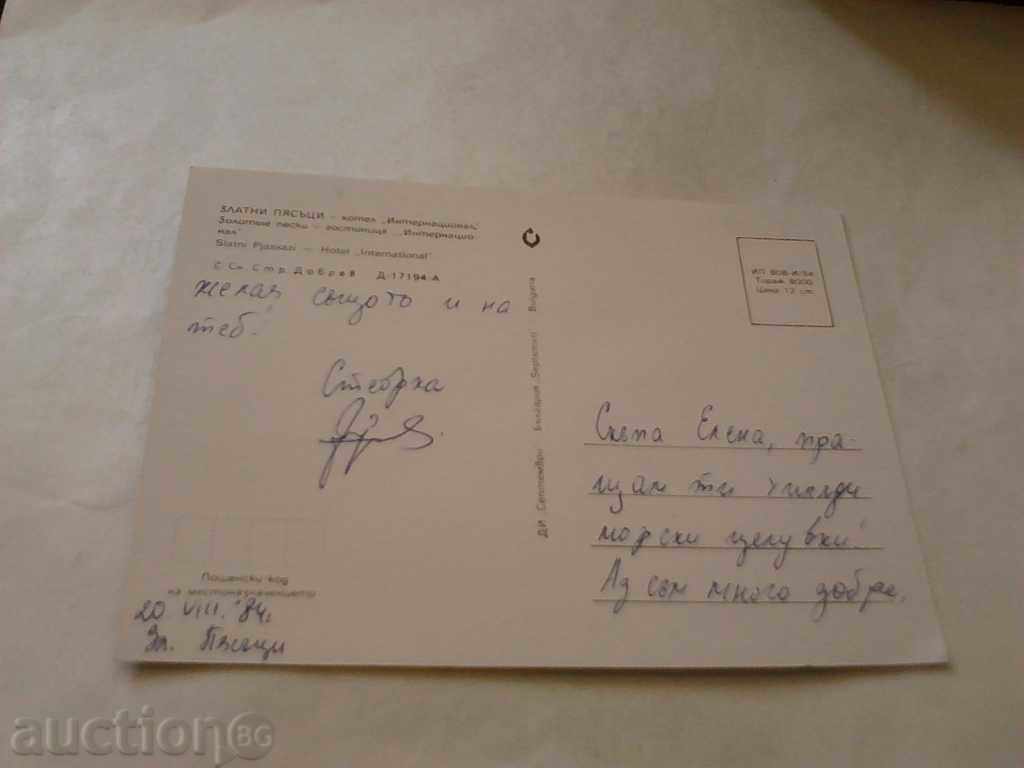 ЗЛАТНИ ПЯСЪЦИ – хотел „Интернационал“
Золотые пески – гостиница „Интернацио-
нал“
Slatni Pjassazi – Hotel „International“
С Сн. Стр. Добрев Д-17194-А
желая същото и на
теб!
20. VIII. '84г.
Зл. Пясъци
Пощенски код
на местоназначението
ДИ „Септември“ България „Septemvri“ Bulgaria
Тираж 8000
Цена 12 ст.
Скъпа Елена, пра-
щам ти хиляди
морски целувки!
Аз съм много добре,
auction BG